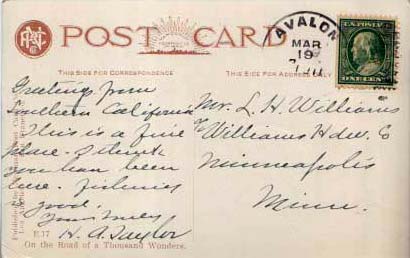 POST CARD
THIS SIDE FOR CORRESPONDENCE
THIS SIDE FOR ADDRESS ONLY
AVALON
MAR
19
U.S. POSTAGE
ONE CENT
Greetings from
Southern California
This is a fine
place. I think
you have been
here. Fishing
is good.
Yours truly
H. A. Taylor
Mr. L. H. Williams
c/o Williams Hdw. Co
Minneapolis
Minn.
E 17
On the Road of a Thousand Wonders.